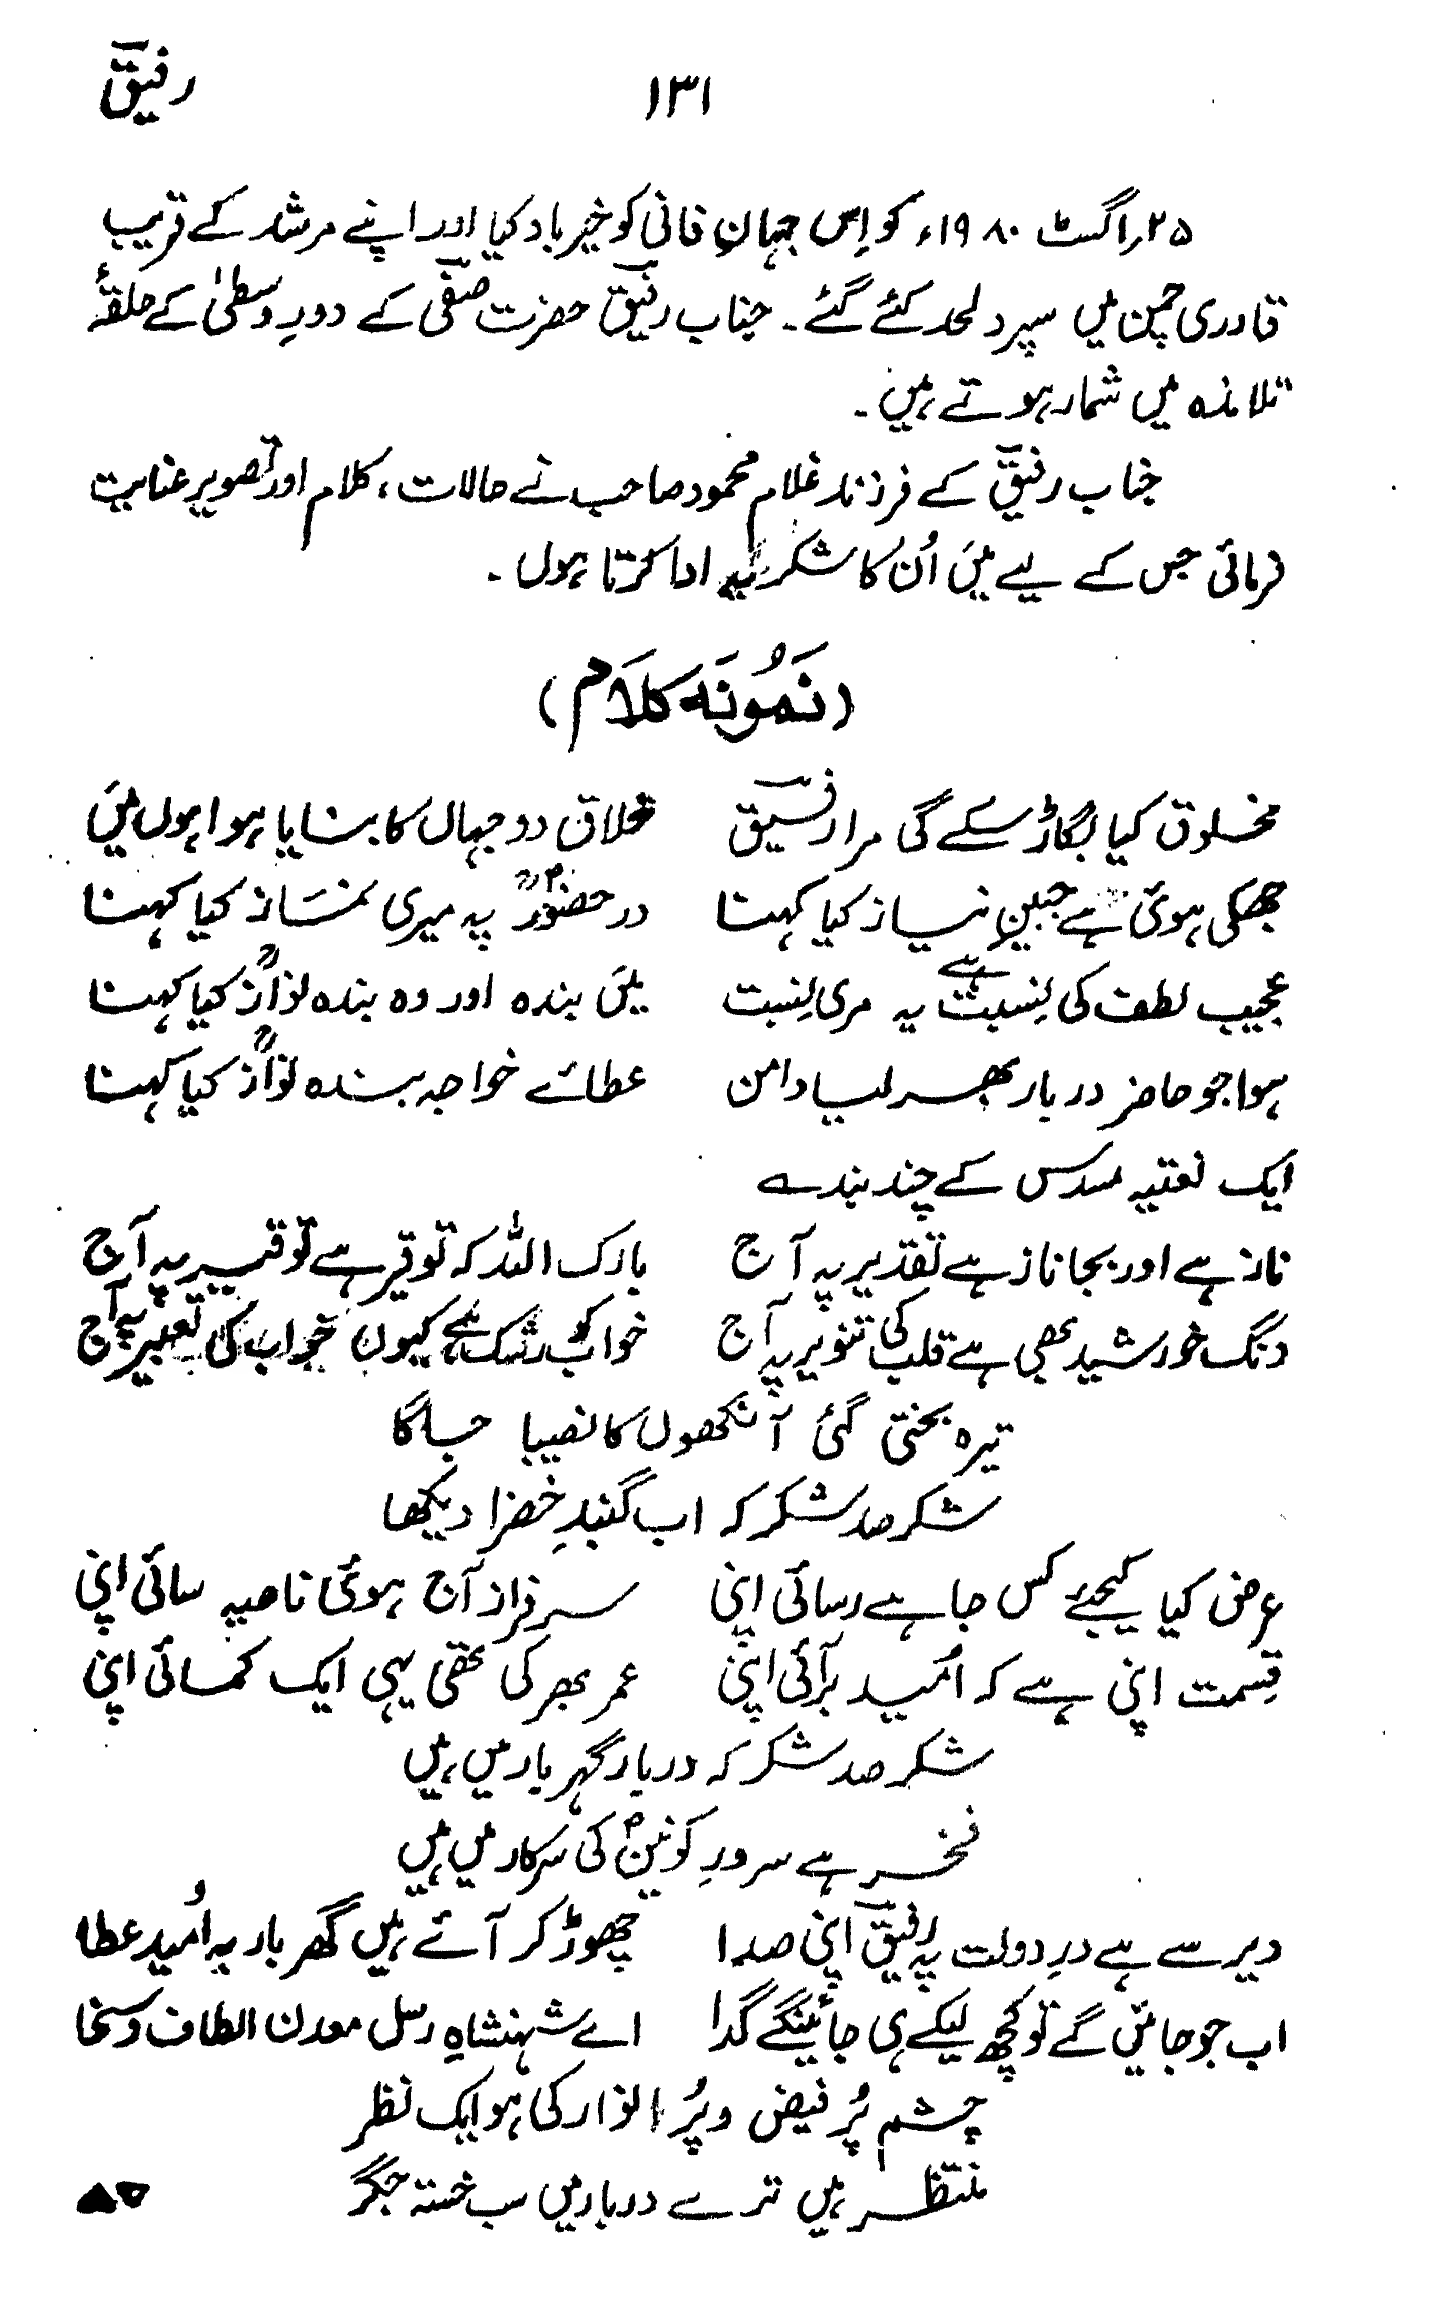 رفیقؔ ۱۳۱
۲۵؍اگسٹ ۱۹۸۰ء کو اِس جہانِ فانی کو خیر باد کیا اور اپنے مرشد کے قریب
قادری چمن میں سپرد لحد کئے گئے۔ جناب رفیقؔ حضرت صفیؔ کے دورِ وسطیٰ کے حلقۂ
تلامذہ میں شمار ہوتے ہیں۔
جناب رفیقؔ کے فرزند غلام محمود صاحب نے حالات، کلام اور تصویر عنایت
فرمائی جس کے لیے میَں اُن کا شکریہ ادا کرتا ہوں۔
(نَمُونَہ کلَام)
مخلوق کیا بگاڑ سکے گی مرا رفیقؔ خلاق دو جہاں کا بنایا ہوا ہوں میَں
جھکی ہوئی ہے جبینِ نیاز کیا کہنا در حضورؐ پہ میری نمَاز کیا کہنا
عجیب لطف کی نِسبت ہے یہ مری نِسبت میَں بندہ اور وہ بندہ نوازؒ کیا کہنا
ہوا جو حاضر دربار بھر لیا دامن عطائے خواجہ بندہ نوازؒ کیا کہنا
ایک نعتیہ مسدس کے چند بندے
ناز ہے اور بجا ناز ہے تقدیر پہ آج بارک اللہ کہ توقیر ہے توقیر پہ آج
دنگ خورشید بھی ہے قلب کی تنویر پہ آج خواب کو رشک ہے کیوں خواب کی تعبیر پہ آج
تیرہ بختی گئی آنکھوں کا نصیبا جاگا
شکر صد شکر کہ اب گنبدِ خضرا دیکھا
عرض کیا کیجئے کس جا ہے رسائی اپنی سرفراز آج ہوئی ناصیہ سائی اپنی
قِسمت اپنی ہے کہ اُمید بر آئی اپنی عمر بھر کی تھی یہی ایک کمائی اپنی
شکر صد شکر کہ دربار گہر بار میں ہیں
فخر ہے سرورِ کونینؐ کی سرکار میں ہیں
دیر سے ہے درِ دولت پہ رفیقؔ اپنی صدا چھوڑ کر آئے ہیں گھر بار پہ اُمید عطا
اب جو جائیں گے تو کچھ لیکے ہی جائینگے گدا اے شہنشاہِ رسل معدن الطاف و سخا
چشم پُر فیض و پُر انوار کی ہو ایک نظر
منتظر ہیں ترے دربار میں سب خستہ جگر